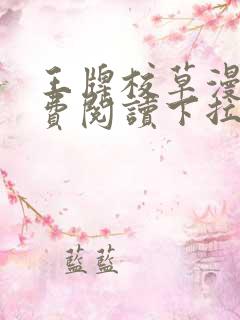 王牌校草漫
費閱讀下拉
藍藍